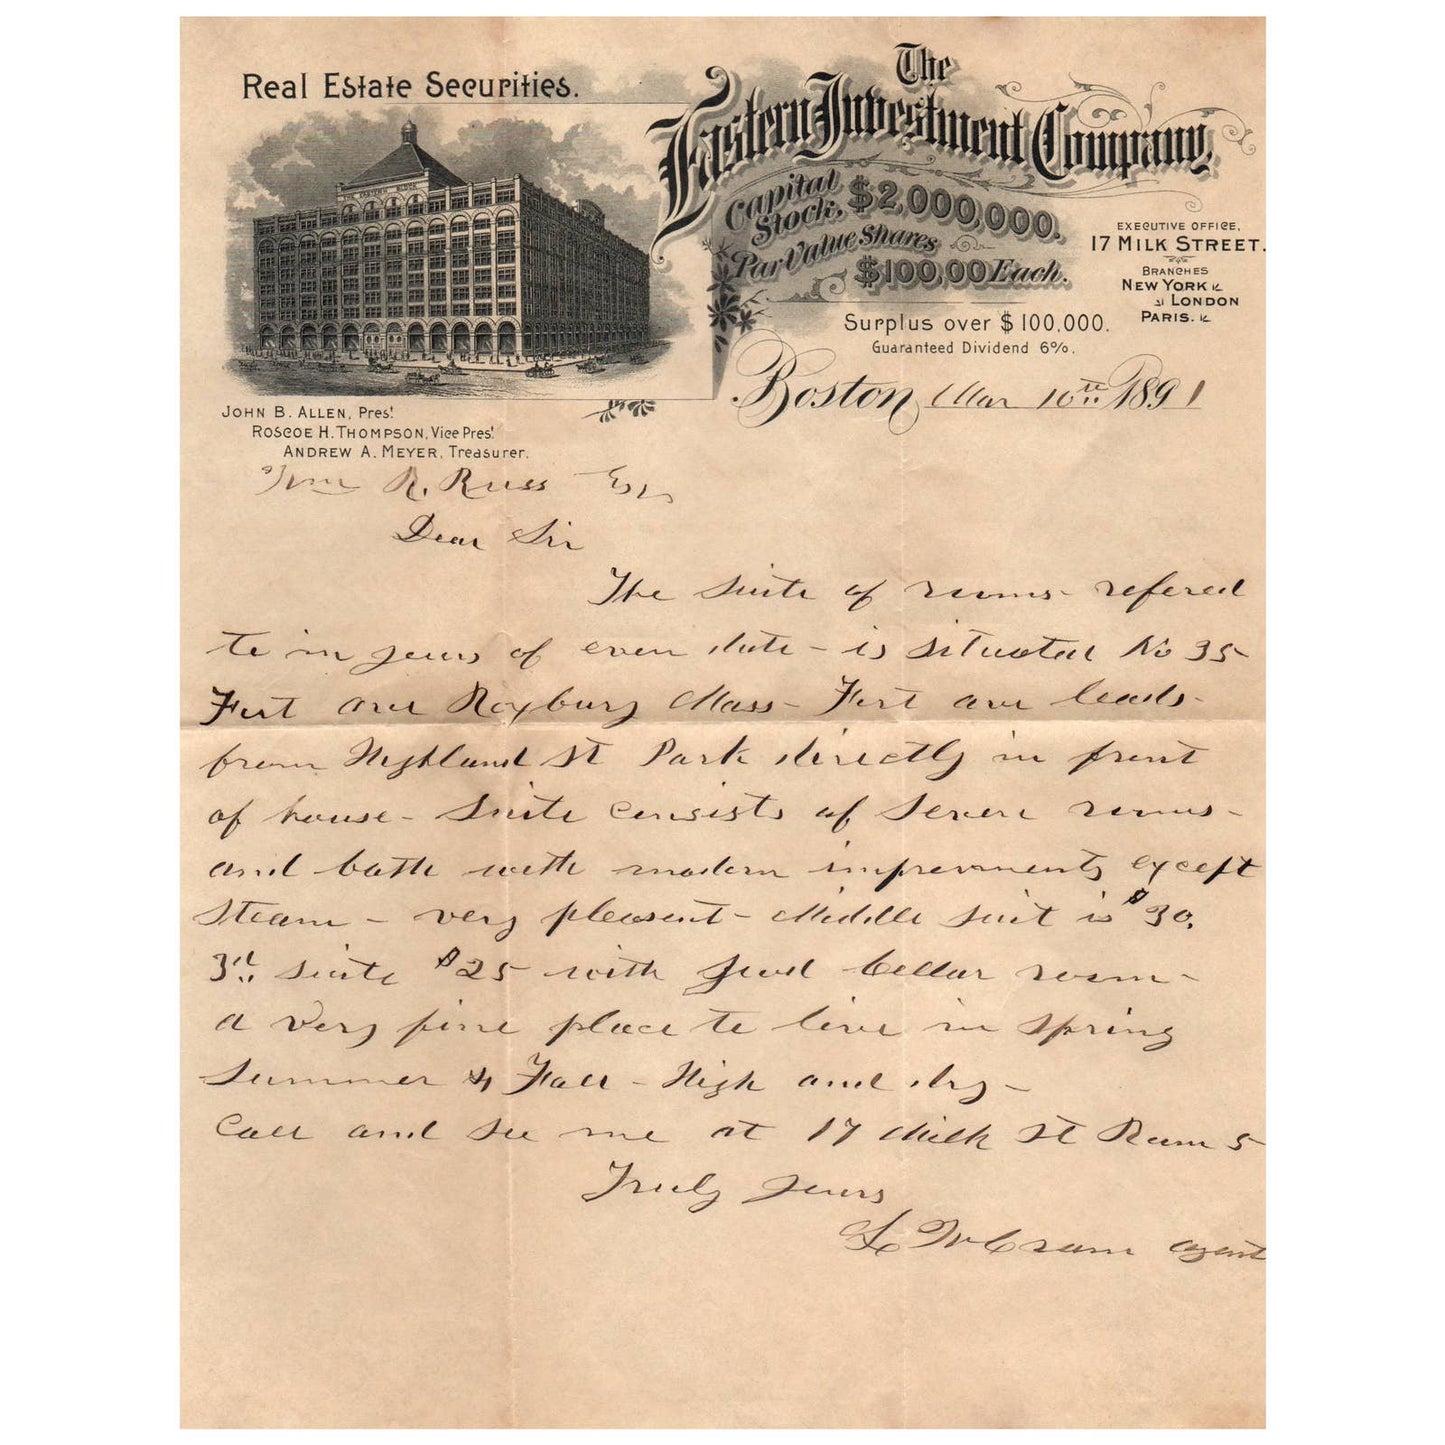 Real Estate Securities.
The
Eastern Investment Company.
Capital
Stock, $2,000,000.
Par Value Shares
$100,00 Each.
EXECUTIVE OFFICE,
17 MILK STREET.
BRANCHES
NEW YORK
LONDON
PARIS.
Surplus over $100,000.
Guaranteed Dividend 6%.
EASTERN BLOCK
Boston Mar 10th 1891
JOHN B. ALLEN, Pres!
ROSCOE H. THOMPSON, Vice Pres!
ANDREW A. MEYER, Treasurer.
Wm R. Russ Esq
Dear Sir
The suite of rooms - refered
to in yours of even date - is situated No 35
Fort ave Roxbury Mass - Fort ave leads -
from Highland St Park directly in front
of house - Suite consists of seven rooms -
and bath with modern improvments except
steam - very pleasent - Middle suit is $30.
3rd suite $25 with good Cellar room -
a very fine place to live in spring
Summer & Fall - High and dry -
Call and see me at 17 Milk St Room 5
Truly yours
Cram agent